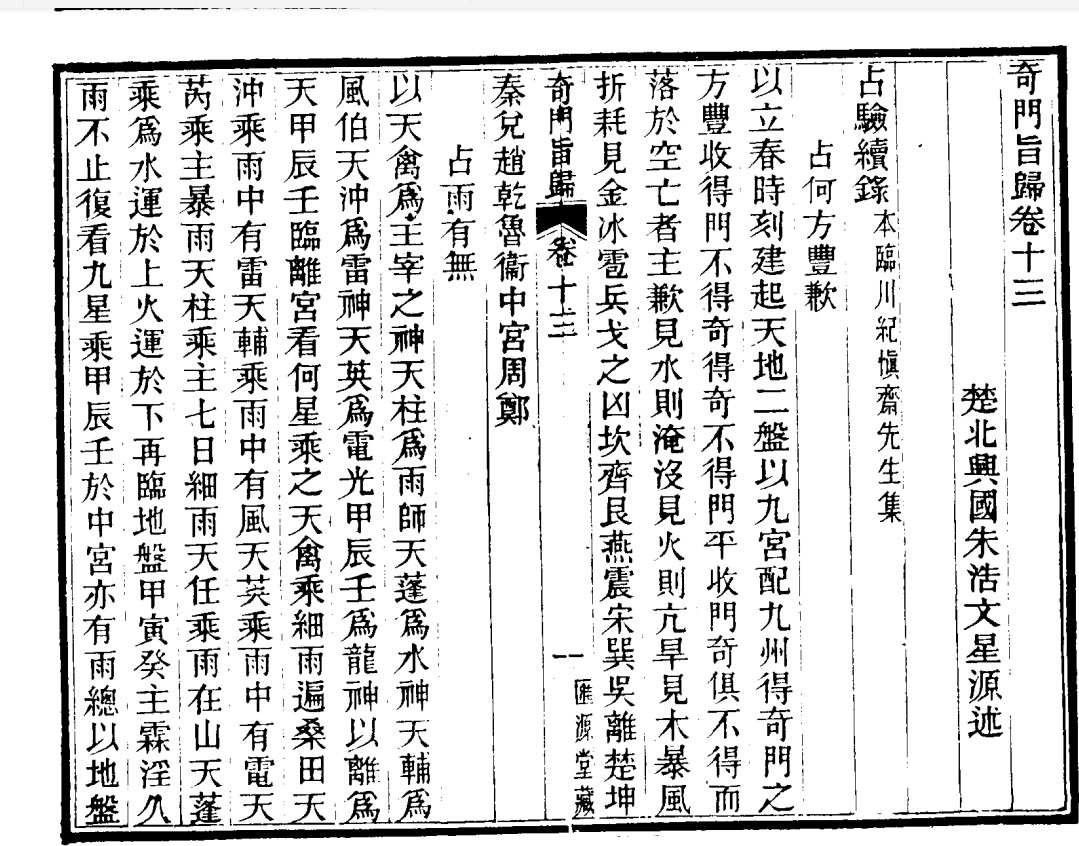 奇門旨歸卷十三
楚北興國朱浩文星源述
占驗續錄本臨川紀愼齋先生集
占何方豐歉
以立春時刻建起天地二盤以九宮配九州得奇門之
方豐收得門不得奇得奇不得門平收門奇俱不得而
落於空亡者主歉見水則淹沒見火則亢旱見木暴風
折耗見金冰雹兵戈之凶坎齊艮燕震宋巽吳離楚坤
奇門旨歸 卷十三 一 匯源堂藏
秦兌趙乾魯衞中宮周鄭
占雨有無
以天禽爲主宰之神天柱爲雨師天蓬爲水神天輔爲
風伯天沖爲雷神天英爲電光甲辰壬爲龍神以離爲
天甲辰壬臨離宮看何星乘之天禽乘細雨遍桑田天
沖乘雨中有雷天輔乘雨中有風天英乘雨中有電天
芮乘主暴雨天柱乘主七日細雨天任乘雨在山天蓬
乘爲水運於上火運於下再臨地盤甲寅癸主霖淫久
雨不止復看九星乘甲辰壬於中宮亦有雨總以地盤